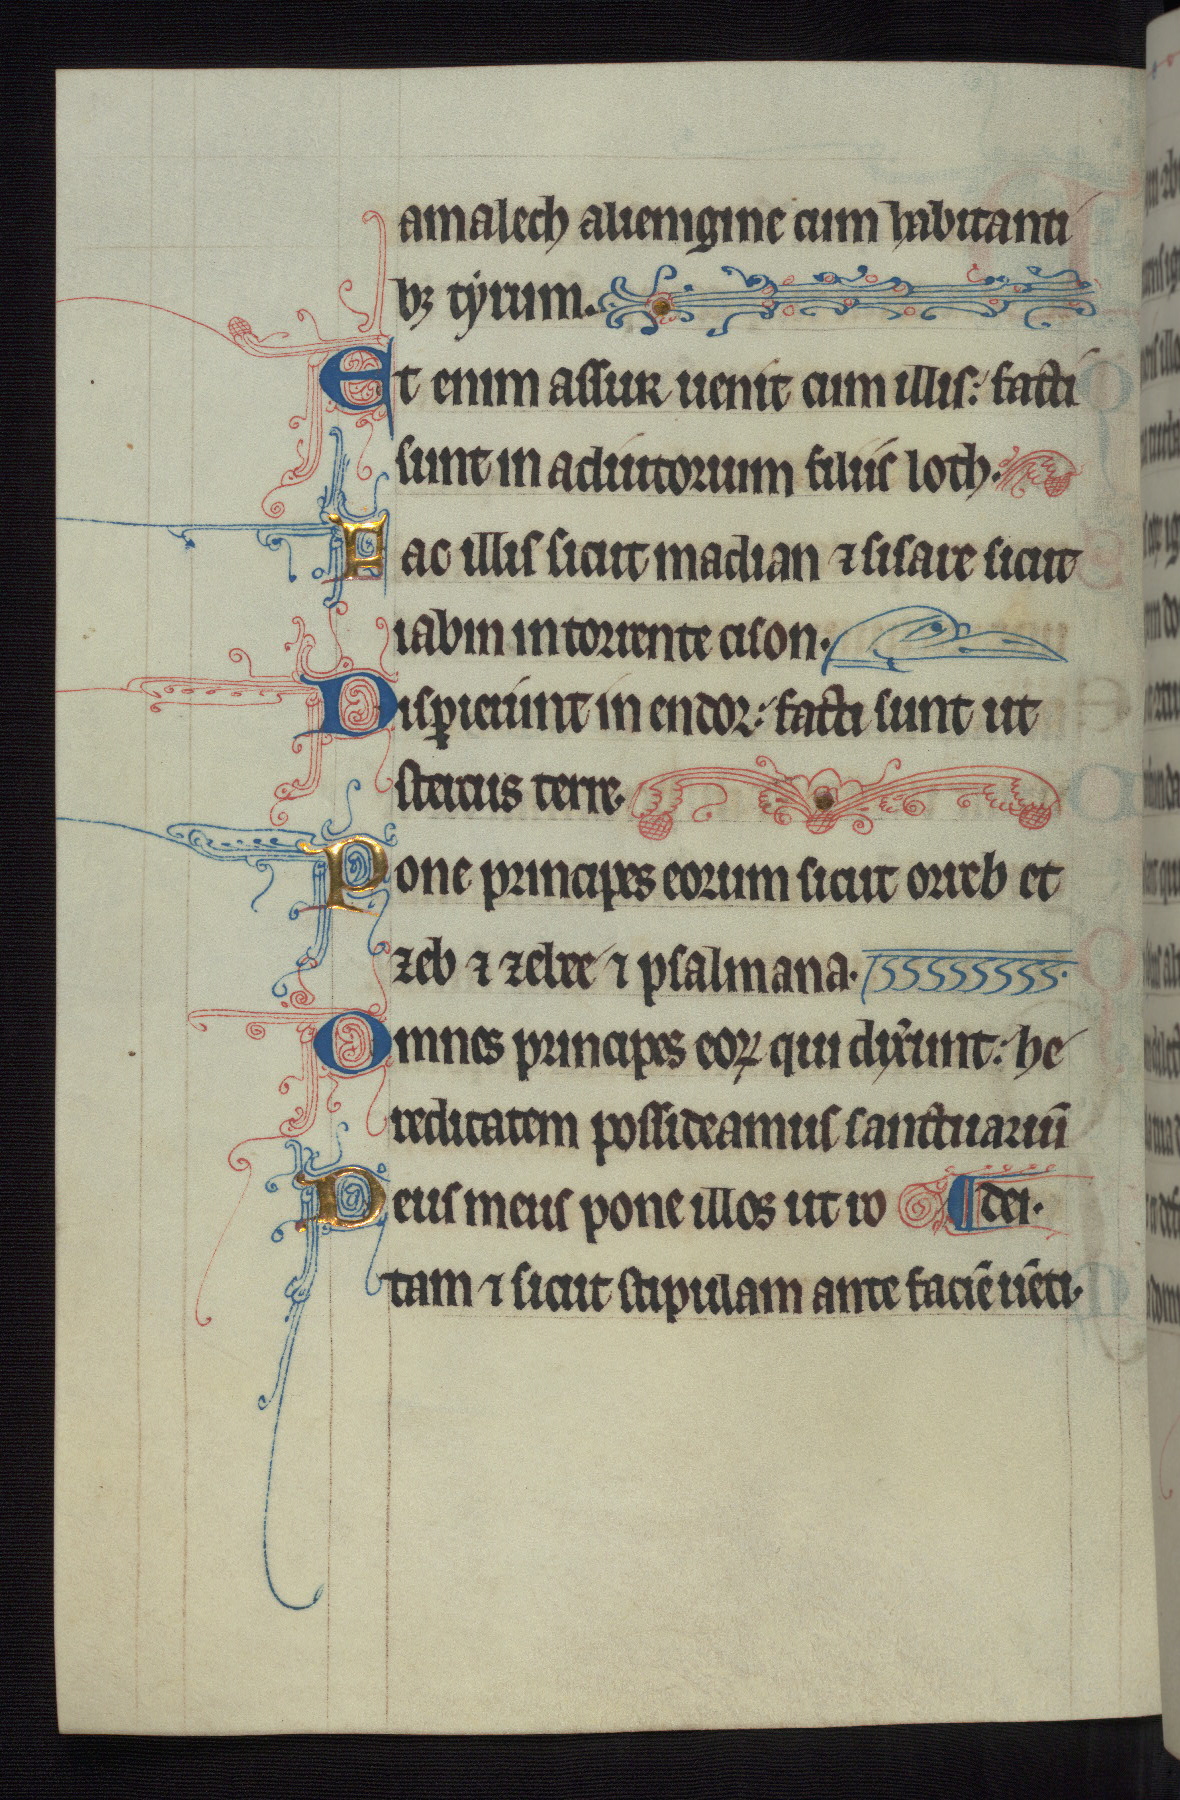 amalech alienigine cum habitanti
bꝫ tyrum.
Et enim assur uenit cum illis: facti
sunt in adiutorium filiis loth.
Fac illis sicut madian ⁊ sisare sicut
iabin in torrente cison.
Disꝑierunt in endor: facti sunt ut
stercus terre.
Pone principes eorum sicut oreb et
zeb ⁊ zebee ⁊ psalmana.
Omnes principes eoꝝ qui dix̾unt: he
reditatem possideamus sanctuariū
Deus meus pone illos ut ro ¶ dei.
tam ⁊ sicut stipulam ante faciē uēti.